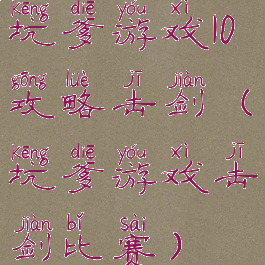 kēng diē yóu xì
坑爹游戏10
gōng lüè jī jiàn
攻略击剑(
kēng diē yóu xì jī
坑爹游戏击
jiàn bǐ sài
剑比赛)